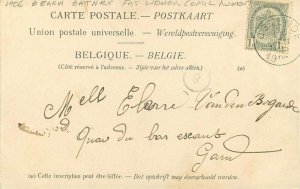 1906 BEACH BATHER FAT WOMEN COMIC HUMOR
CARTE POSTALE. — POSTKAART
Union postale universelle. — Wereldpostvereeniging.
BELGIQUE. — BELGIE.
(Côté réservé à l'adresse. — Zijde voor het adres alleen.)
(a)
Mell
Quai du bas escaut
Gand
(a) Cette inscription peut être biffée. — Dit opschrift mag doorgehaald worden.